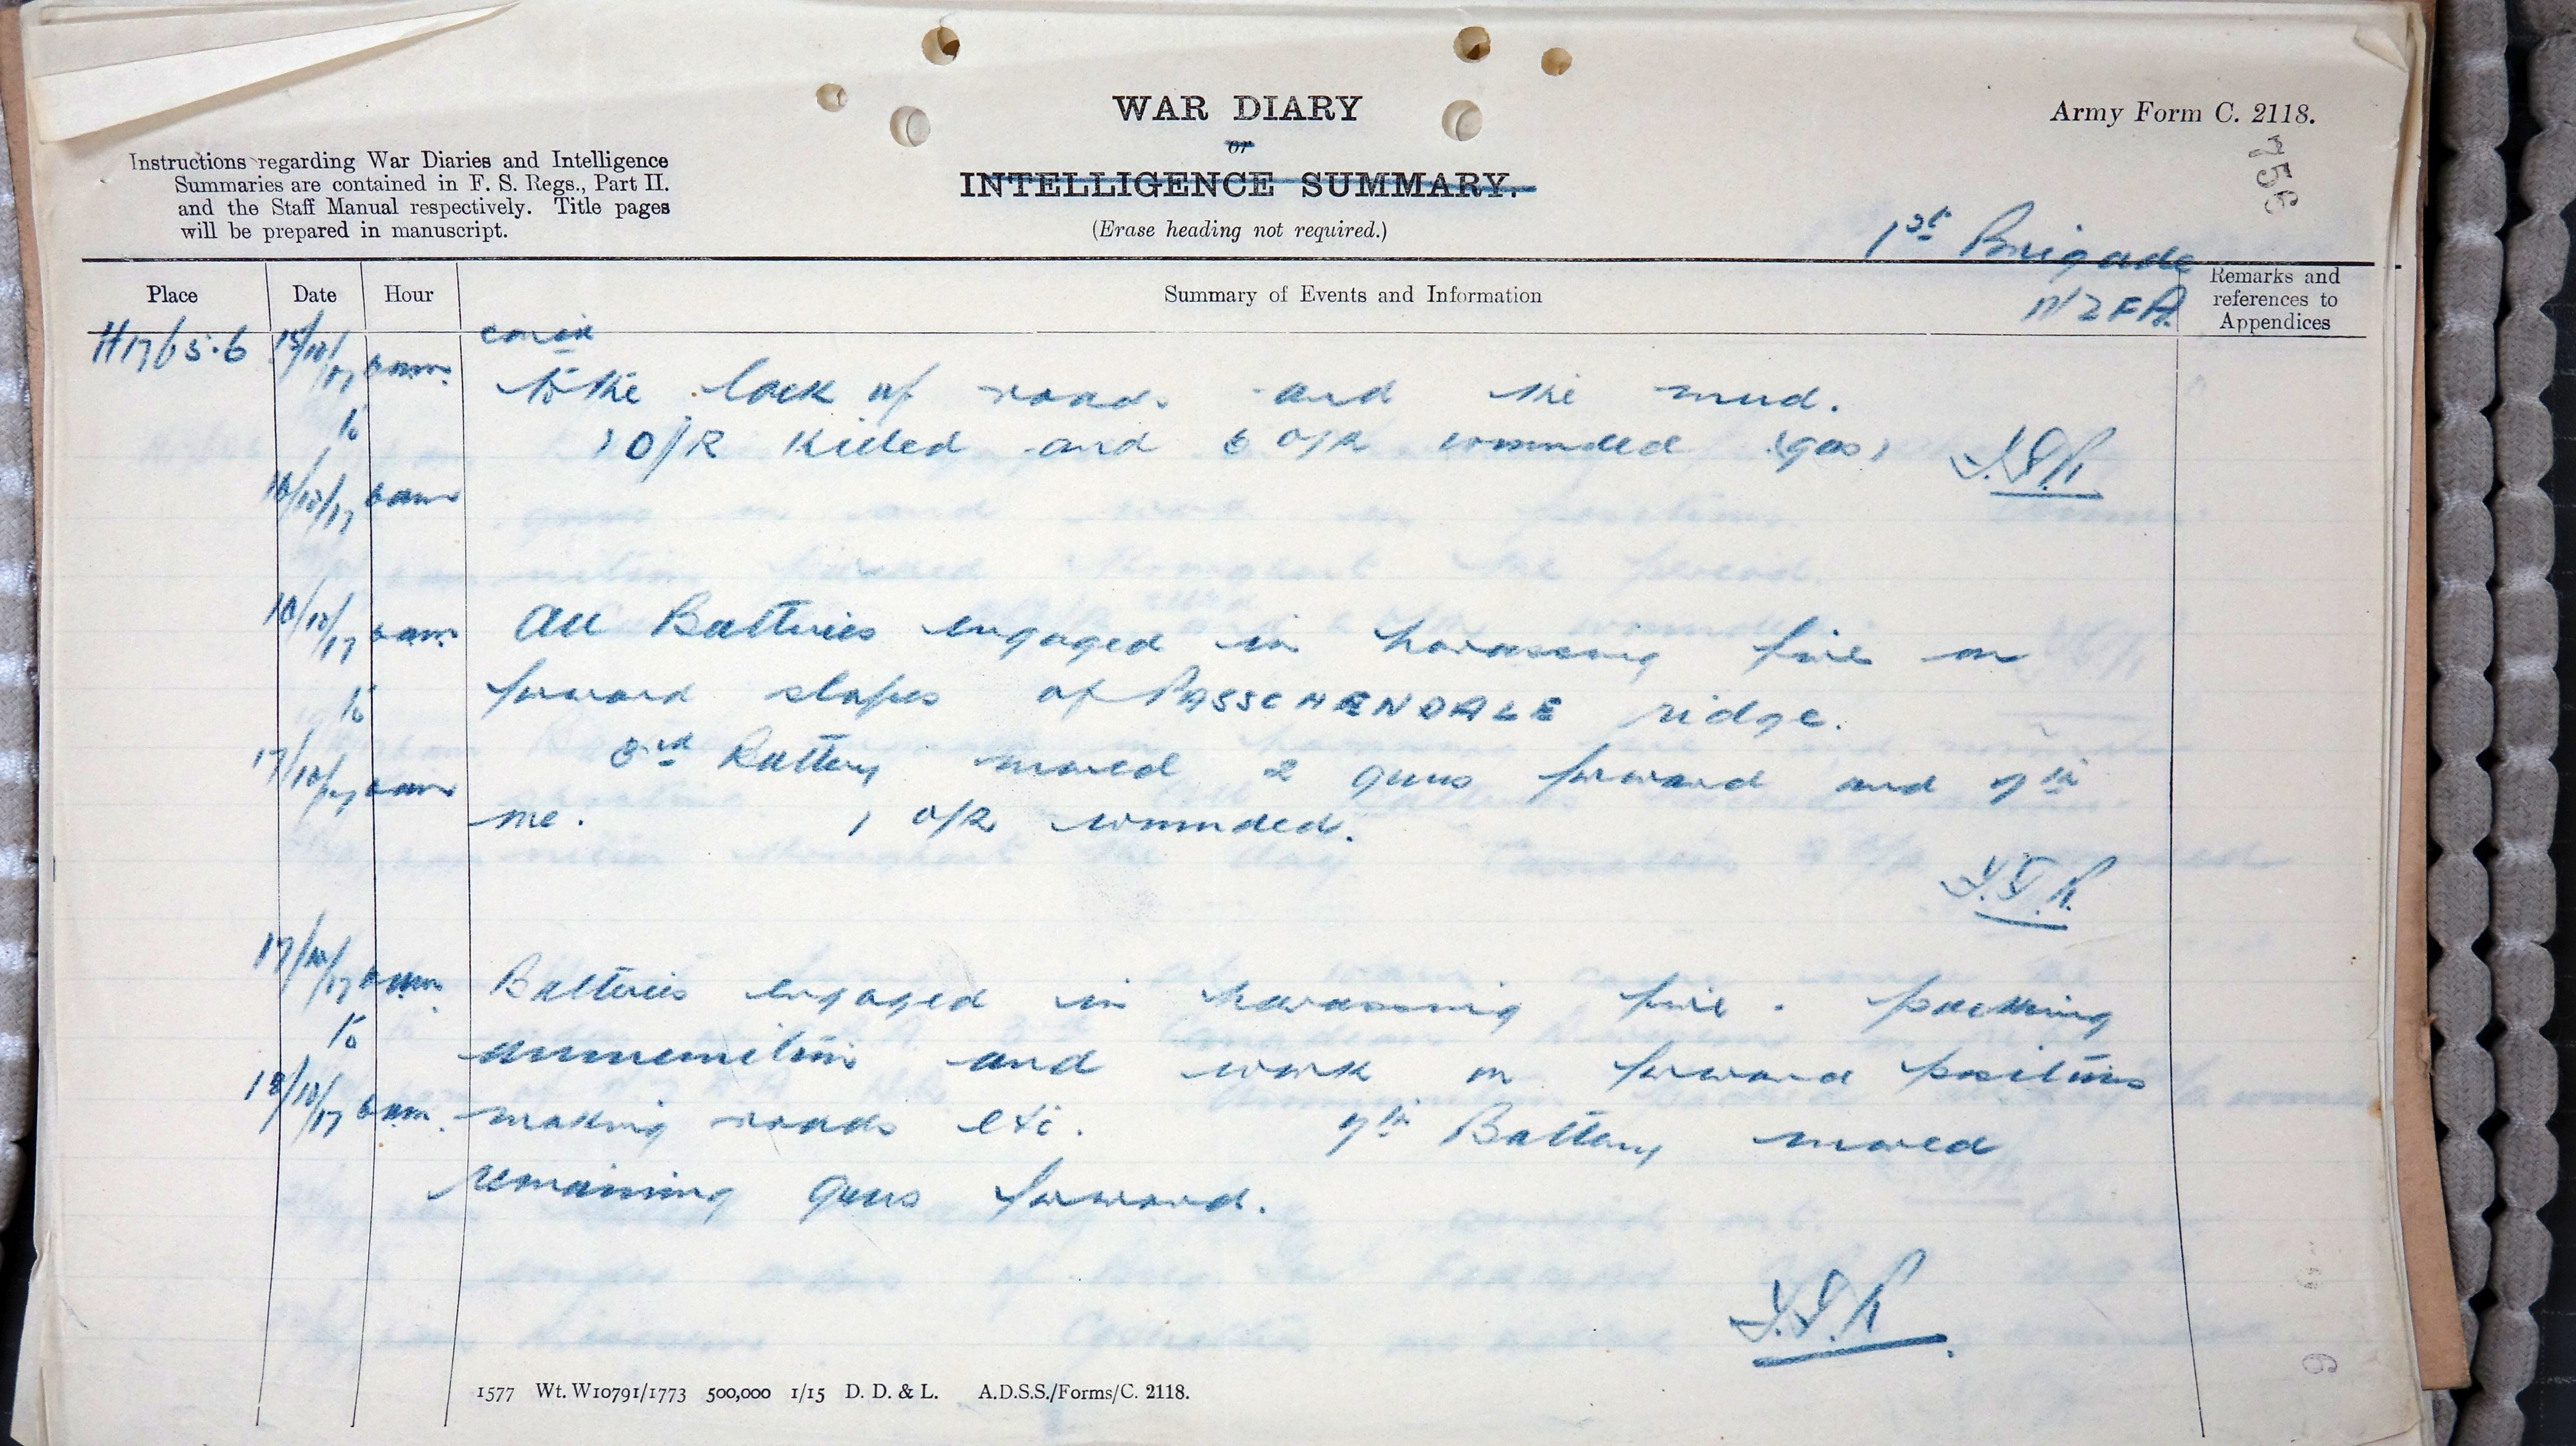 WAR DIARY
or
INTELLIGENCE SUMMARY.
(Erase heading not required.)
Army Form C. 2118.
Instructions regarding War Diaries and Intelligence
Summaries are contained in F. S. Regs., Part II.
and the Staff Manual respectively. Title pages
will be prepared in manuscript.
1st Brigade
NZFA.
Place Date Hour Summary of Events and Information Remarks and references to Appendices
15/10/17 6 am. contd
to the lack of roads and the mud.
to 1 O/R Killed and 6 O/R wounded (gas)
16/10/17 6 am
16/10/17 6 am. All Batteries engaged in harassing fire on
to forward slopes of PASSCHENDALE ridge.
17/10/17 6 am 3rd Battery moved 2 guns forward and 7th
one. 1 O/R wounded.
17/10/17 6 am. Batteries engaged in harassing fire. packing
to ammunition and work on forward positions
18/10/17 6 am. making roads etc. 7th Battery moved
remaining guns forward.
1577 Wt. W10791/1773 500,000 1/15 D. D. & L. A.D.S.S./Forms/C. 2118.